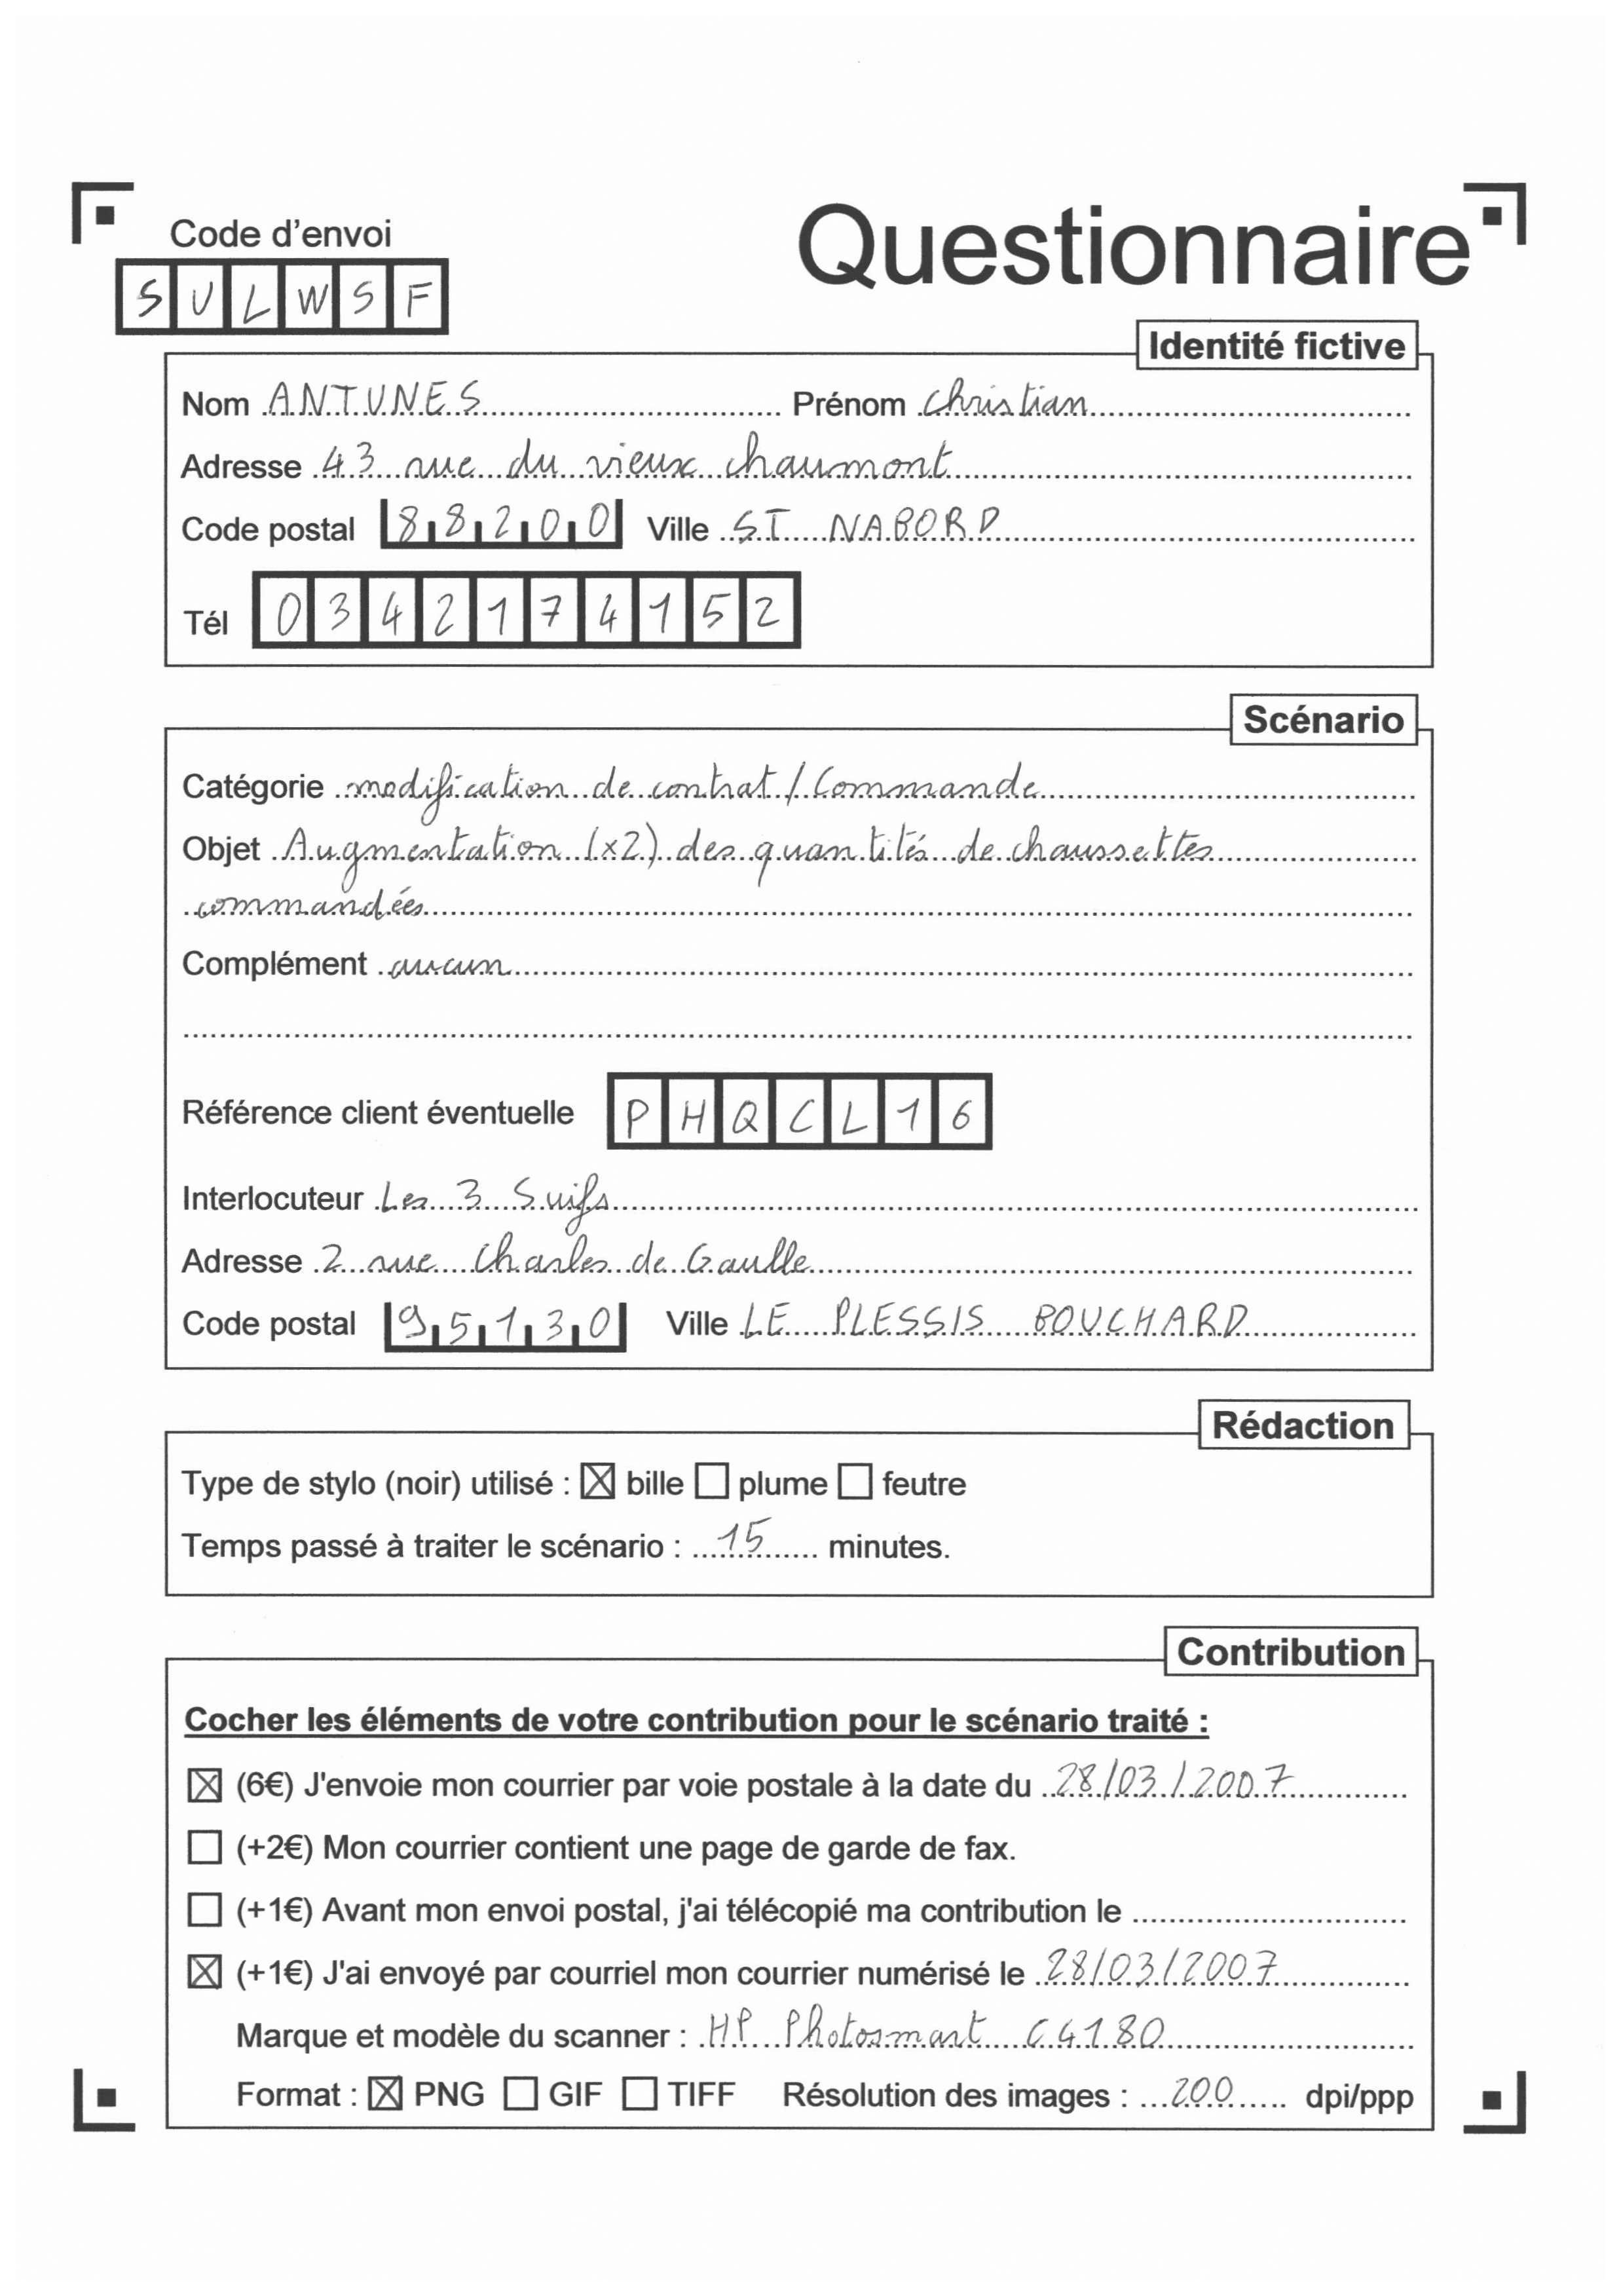 Code d'envoi
Questionnaire
SULWSF
Identité fictive
Nom ANTUNES Prénom Christian
Adresse 43 rue du vieux chaumont
Code postal 88200 Ville ST NABORD
Tél 0342174152
Scénario
Catégorie modification de contrat / Commande
Objet Augmentation (x2) des quantités de chaussettes
commandées
Complément aucun
Référence client éventuelle PHQCL16
Interlocuteur Les 3 Suifs
Adresse 2 rue Charles de Gaulle
Code postal 95130 Ville LE PLESSIS BOUCHARD
Rédaction
Type de stylo (noir) utilisé : ☒ bille ☐ plume ☐ feutre
Temps passé à traiter le scénario : 15 minutes.
Contribution
Cocher les éléments de votre contribution pour le scénario traité :
☒ (6€) J'envoie mon courrier par voie postale à la date du 28/03/2007
☐ (+2€) Mon courrier contient une page de garde de fax.
☐ (+1€) Avant mon envoi postal, j'ai télécopié ma contribution le
☒ (+1€) J'ai envoyé par courriel mon courrier numérisé le 28/03/2007
Marque et modèle du scanner : HP Photosmart C4180
Format : ☒ PNG ☐ GIF ☐ TIFF Résolution des images : 200 dpi/ppp